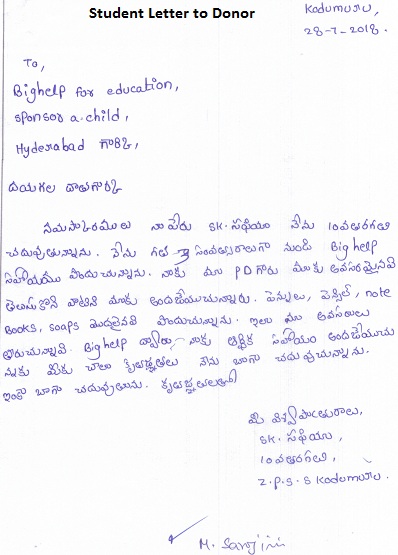 Student Letter to Donor
Kodumuru,
28-7-2018.
To,
Bighelp for education,
sponsor a child,
Hyderabad గారికి,
దయగల దాతగారికి
నమస్కారములు నా పేరు SK. సఫియా నేను 10వ తరగతి
చదువుతున్నాను. నేను గత 3 సంవత్సరాలుగా నుండి Big help
సహాయము పొందుచున్నాను. నాకు మా PD గారు మాకు అవసరమైనవి
తెలుసుకొని వాటిని మాకు అందజేయుచున్నారు. పెన్నులు, పెన్సిల్, note
Books, soaps మొదలైనవి పొందుచున్నాను. ఇలా మా అవసరాలు
తీరుచున్నావి. Big help ద్వారా నాకు ఆర్థిక సహాయం అందజేయుచు
న్నందుకు మీకు చాలా కృతజ్ఞతలు నేను బాగా చదువుచున్నాను.
ఇంకా బాగా చదువుతాను. కృతజ్ఞతలతో
మీ విశ్వాసపాత్రురాలు,
SK. సఫియా,
10వ తరగతి,
Z.P.S.S Kodumuru.
M. Sarojini